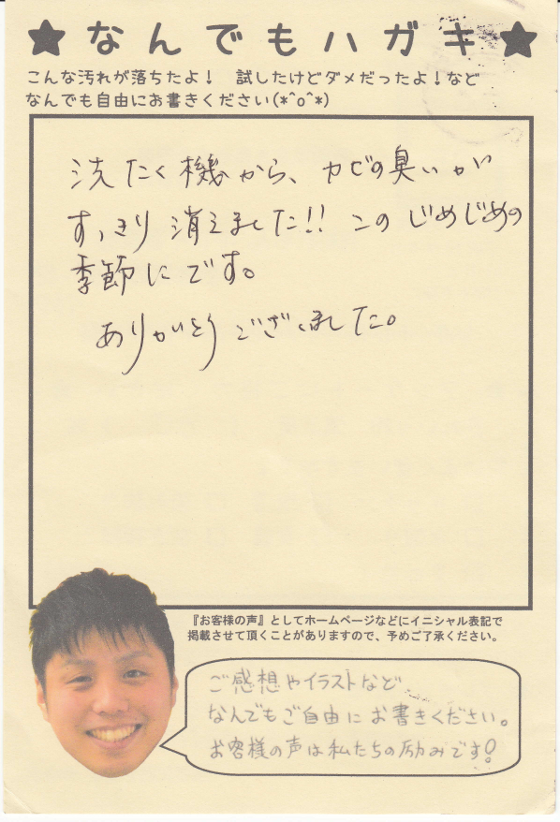 ★なんでもハガキ★
こんな汚れが落ちたよ！ 試したけどダメだったよ！など
なんでも自由にお書きください(*^o^*)
洗たく機から、カビの臭いが
すっきり消えました!! このじめじめの
季節にです。
ありがとうございました。
『お客様の声』としてホームページなどにイニシャル表記で
掲載させて頂くことがありますので、予めご了承ください。
ご感想やイラストなど
なんでもご自由にお書きください。
お客様の声は私たちの励みです！